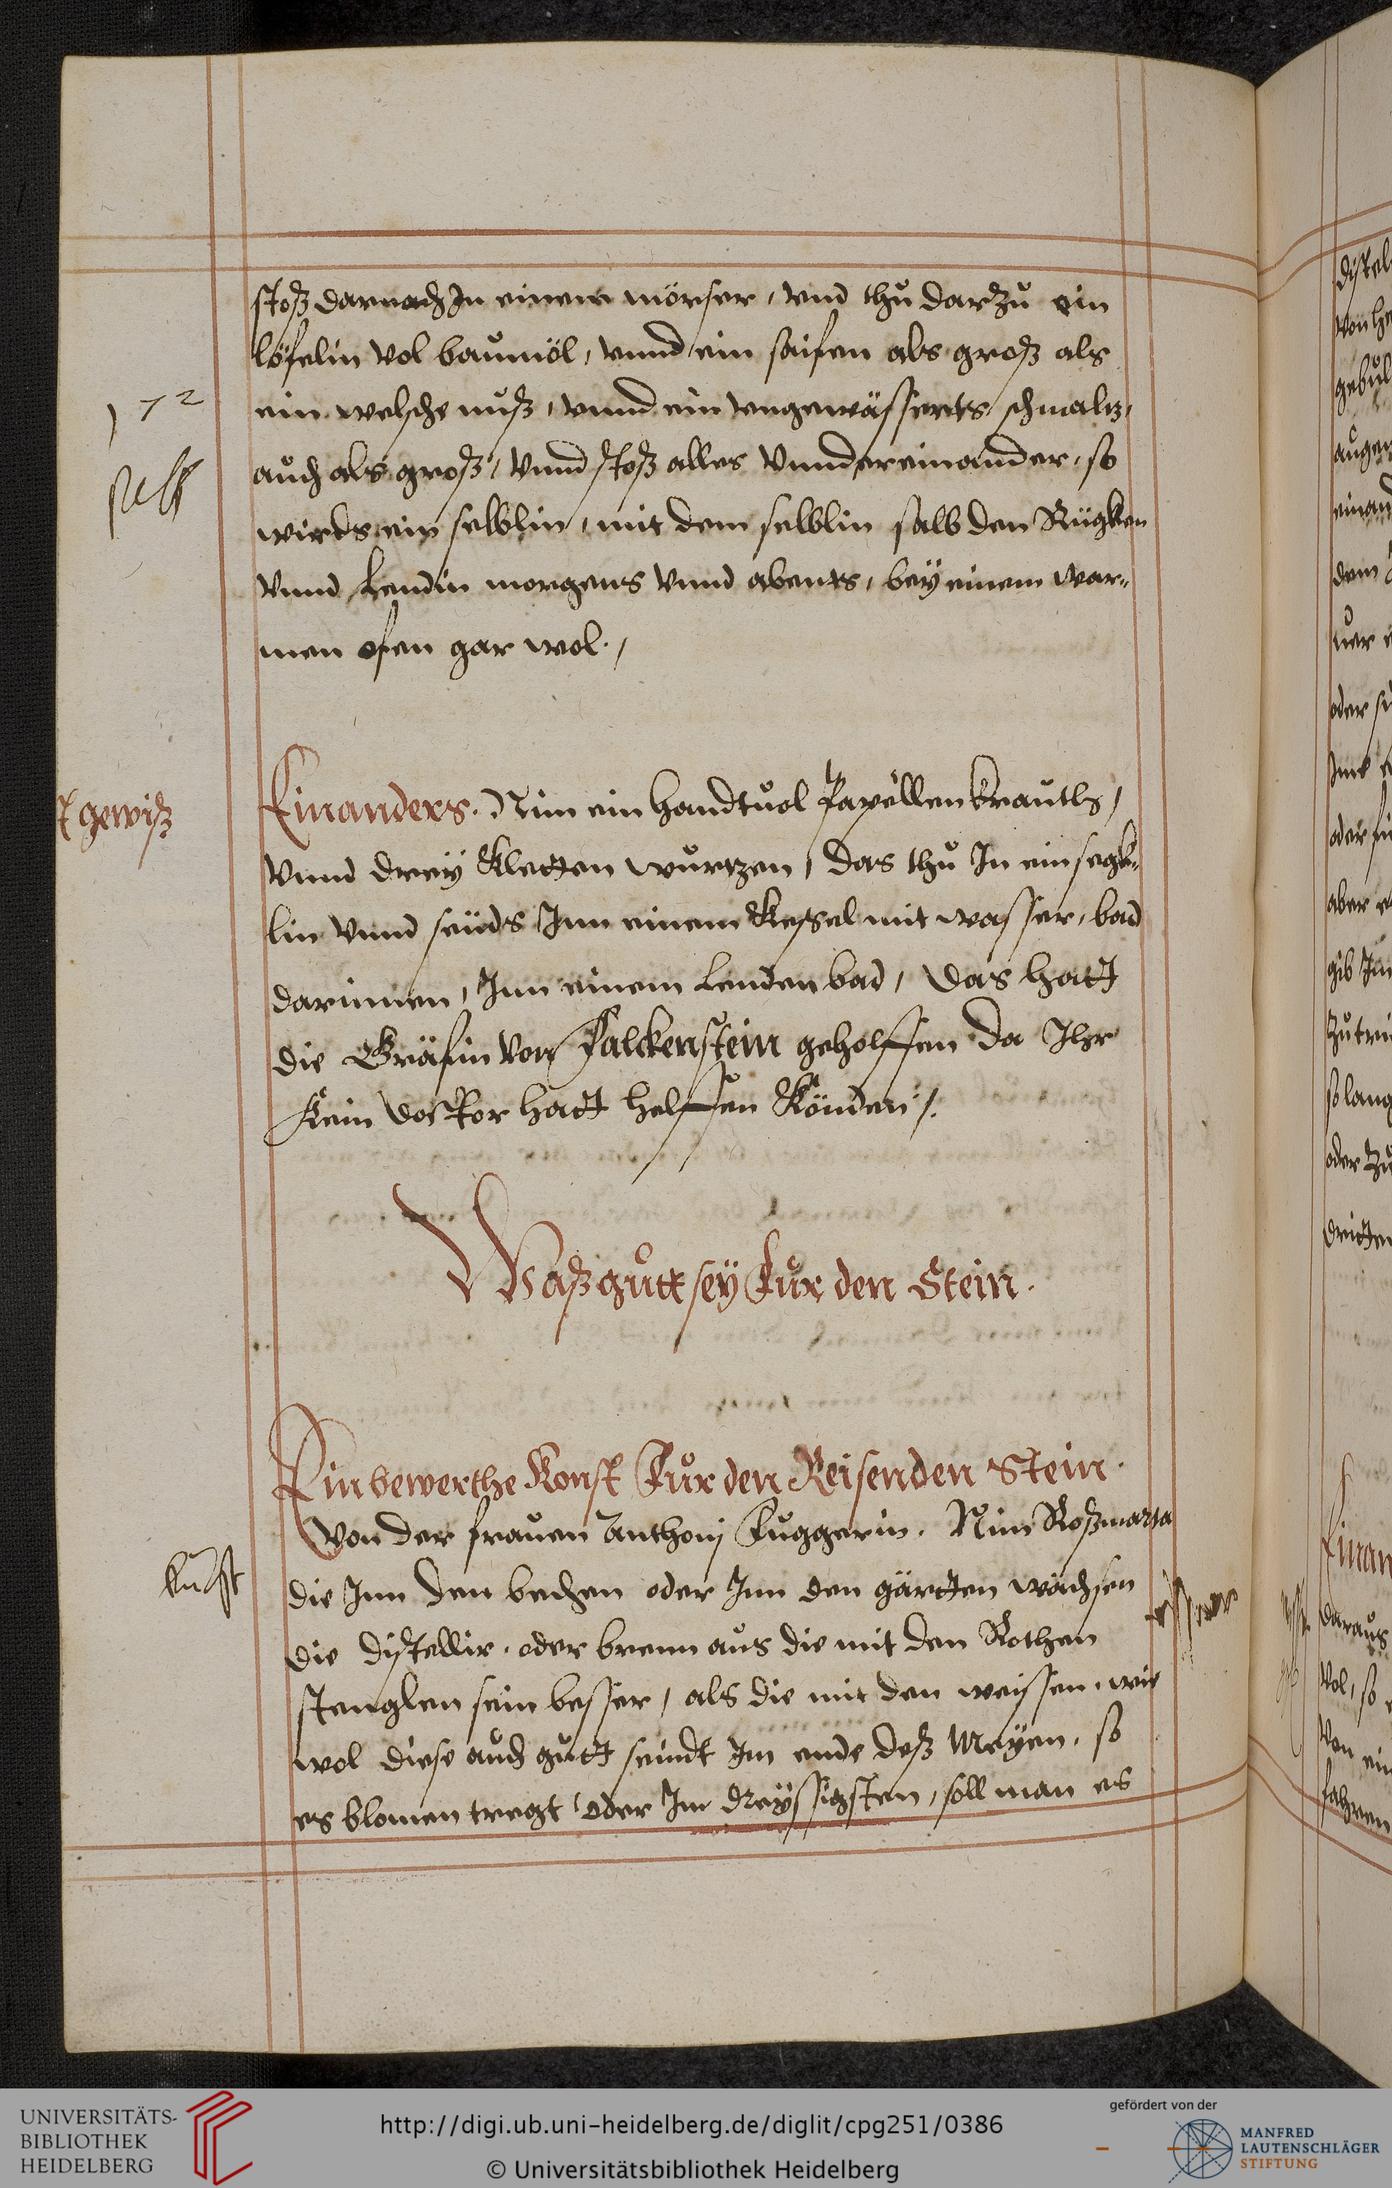 stoß darnach In einem mörser, vnd thu darzu ein
löfelin vol baumöl, vnnd ein saifen als groß als
ein welsche nuß, vnnd ein vngewässerts schmaltz,
auch als groß, vnnd stoß alles vnndereinander, so
wirds ein selblin, mit dem selblin salb den Rügken
vnnd Lendin morgens vnnd abents, bey einem war-
men ofen gar wol./
172
gewiß
Einanders. Nim ein handtuol Papellen krauths,
vnnd drey kletten wurtzen, das thu In ein segk-
lin vnnd seuds Inn einem Kessel mit wasser, bad
darinnen, Inn einem Lenden bad, das hatt
die Gräfin von Falckenstein geholffen da Ihr
Kein doctor hatt helffen könden/.
Waß gutt sey Fur den Stein.
Ein bewerthe Konst Fur den Reisenden Stein.
Von der frauen Anthonj Fuggerin. Nim Roßmarta
die Inn den bechen oder Inn den gärtten wachsen
die distellir, oder brenn aus die mit den Rothen
stenglen sein besser, als die mit den weissen, wie
wol diese auch gutt seindt Im ende deß Meyen, so
es blomen tregt oder Im dreyssigsten, soll man es
distel
von he
gebul
augen
einan
dem
oder
aber
gib Im
zutrin
so lang
oder zu
dritten
Einan
daraus
vol, so
von ein
fahren
UNIVERSITÄTS-
BIBLIOTHEK
HEIDELBERG
http://digi.ub.uni-heidelberg.de/diglit/cpg251/0386
© Universitätsbibliothek Heidelberg
gefördert von der
MANFRED
LAUTENSCHLÄGER
STIFTUNG